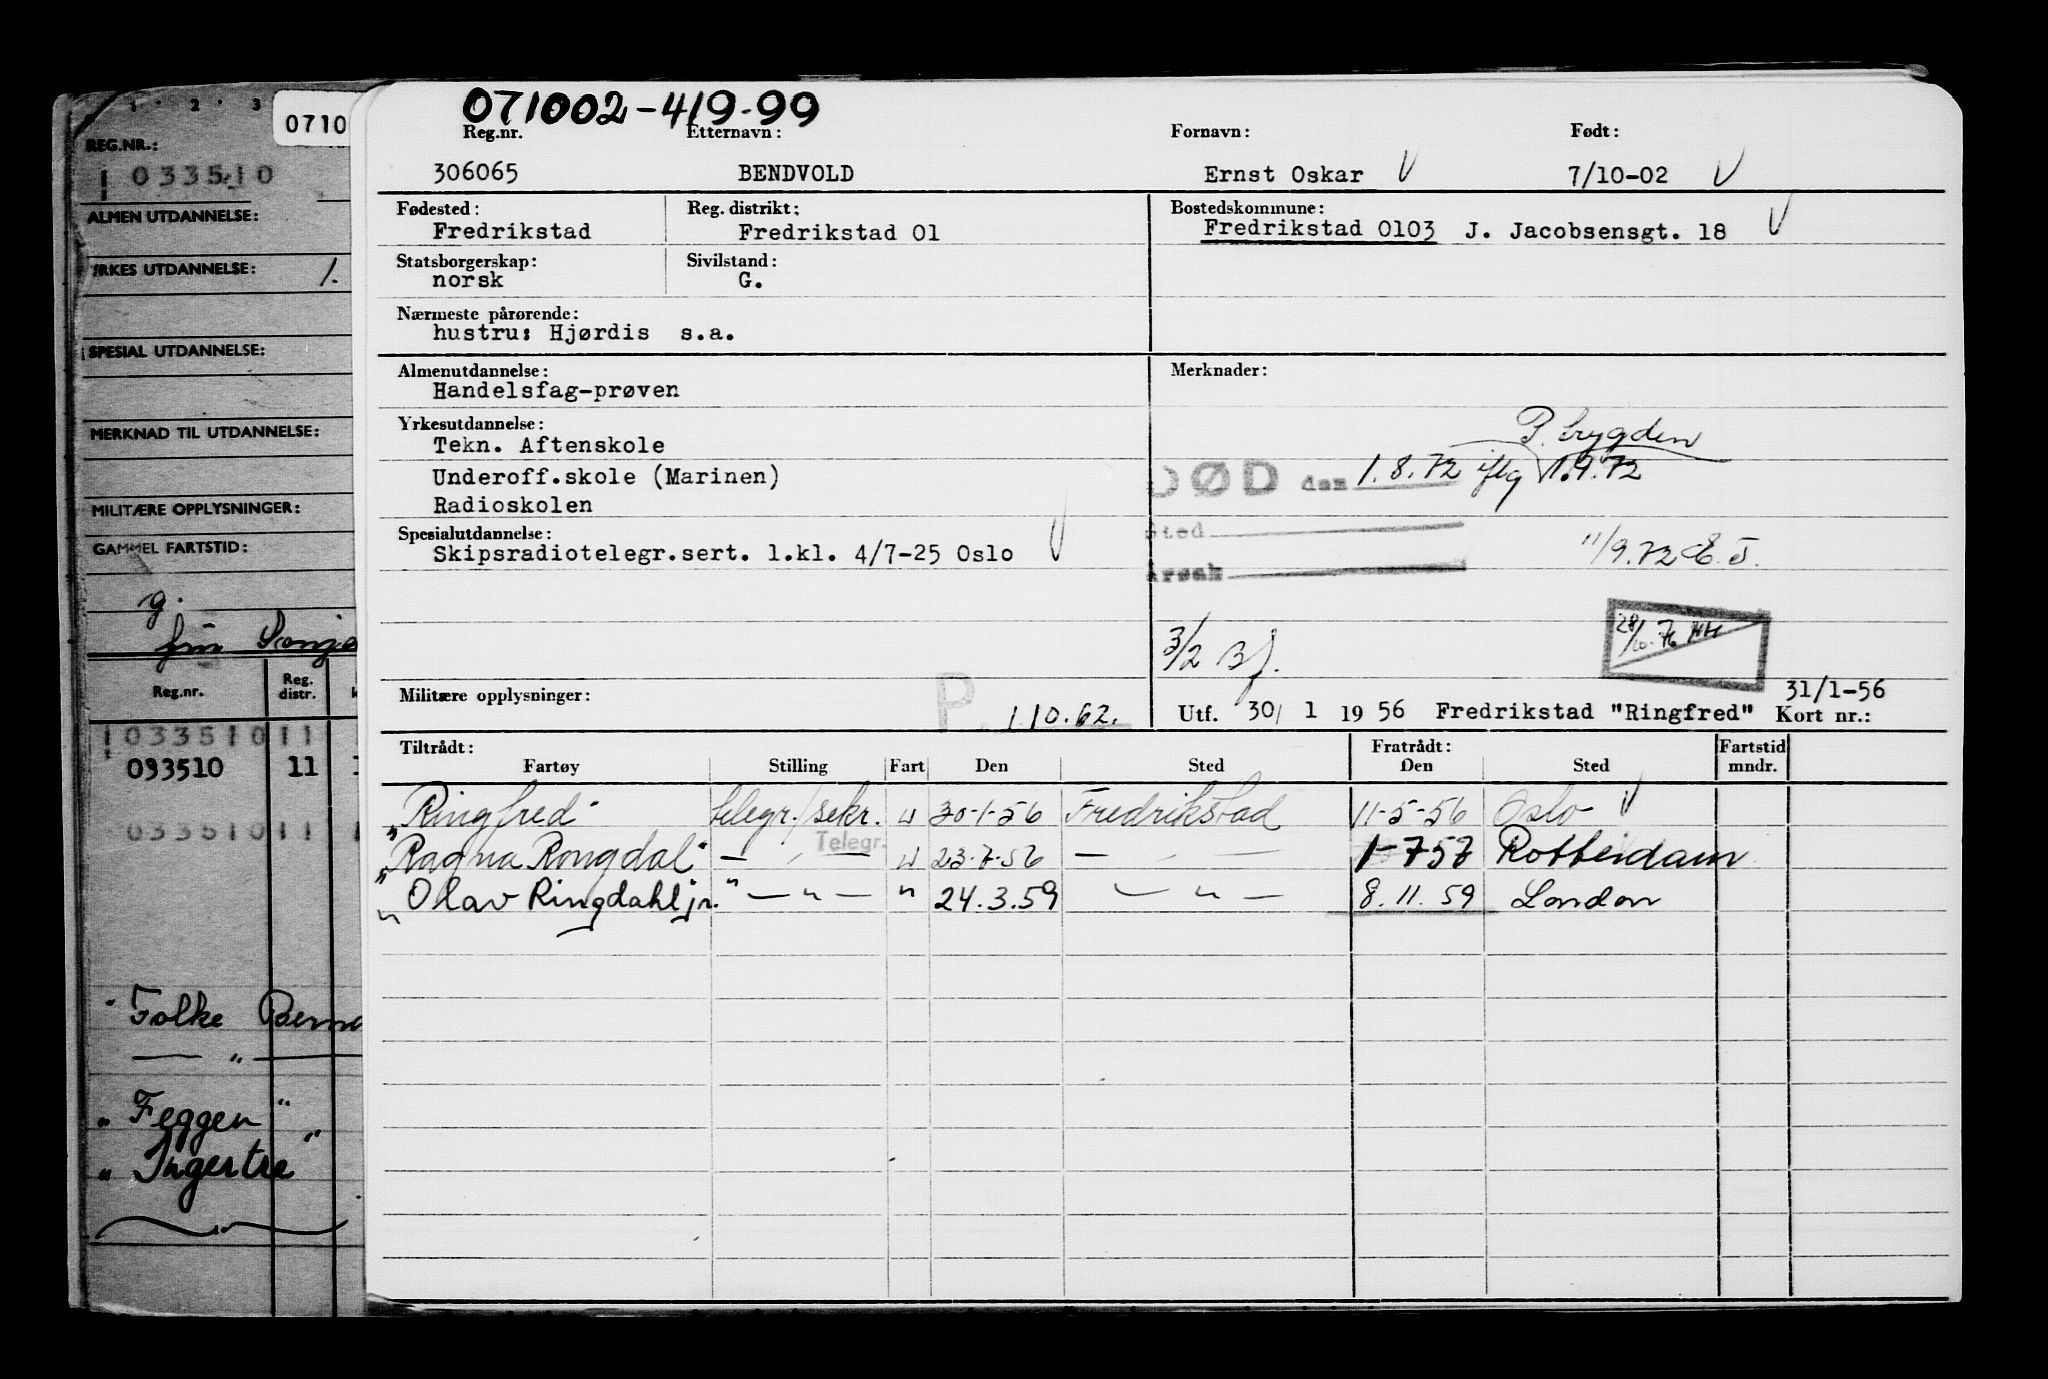 1 · 2 · 3
0710
REG.NR.:
033510
ALMEN UTDANNELSE:
YRKES UTDANNELSE: 1.
SPESIAL UTDANNELSE:
MERKNAD TIL UTDANNELSE:
MILITÆRE OPPLYSNINGER:
GAMMEL FARTSTID:
g.
Reg.nr. Reg. distr.
033510 11
093510 11
033510 11
" Folke
— " —
" Feggen "
" Ingertre "
071002-419-99
Reg.nr. Etternavn: Fornavn: Født:
306065 BENDVOLD Ernst Oskar V 7/10-02 V
Fødested: Reg. distrikt: Bostedskommune:
Fredrikstad Fredrikstad 01 Fredrikstad 0103 J. Jacobsensgt. 18 V
Statsborgerskap: Sivilstand:
norsk G.
Nærmeste pårørende:
hustru: Hjørdis s.a.
Almenutdannelse: Merknader:
Handelsfag-prøven
Yrkesutdannelse:
Tekn. Aftenskole
Underoff.skole (Marinen)
Radioskolen
Spesialutdannelse:
Skipsradiotelegr.sert. 1.kl. 4/7-25 Oslo V
P. bygden
DØD den 1.8.72 iflg 1.9.72
Sted
Årsak
11/9.72
3/2
28/10.76
Militære opplysninger: P. 1.10.62.
31/1-56
Utf. 30/ 1 19 56 Fredrikstad "Ringfred" Kort nr.:
Tiltrådt: Fratrådt: Fartstid
Fartøy Stilling Fart Den Sted Den Sted mndr.
"Ringfred" telegr./sekr. u 30-1-56 Fredrikstad 11-5-56 Oslo V
"Ragna Ringdal" — " — Telegr. u 23-7-56 — " — 1-757 Rotterdam
"Olav Ringdahl jr." — " — " 24.3.59 — " — 8.11.59 London